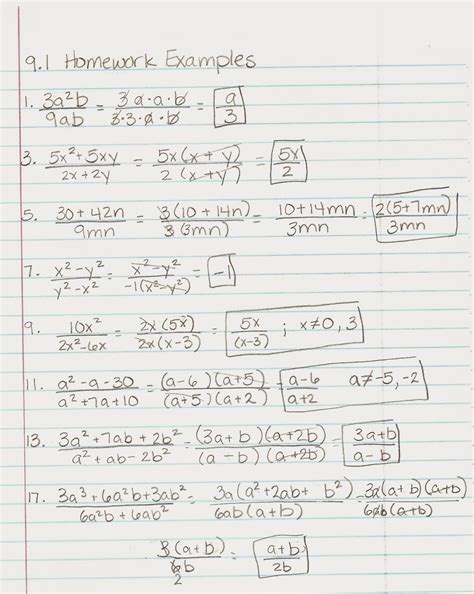 9.1 Homework Examples
1. 3a²b/9ab = 3·a·a·b/3·3·a·b = a/3
3. 5x²+5xy/2x+2y = 5x(x+y)/2(x+y) = 5x/2
5. 30+42n/9mn = 3(10+14n)/3(3mn) = 10+14mn/3mn = 2(5+7mn)/3mn
7. x²-y²/y²-x² = x²-y²/-1(x²-y²) = -1
9. 10x²/2x²-6x = 2x(5x)/2x(x-3) = 5x/(x-3) ; x≠0, 3
11. a²-a-30/a²+7a+10 = (a-6)(a+5)/(a+5)(a+2) = a-6/a+2 a≠-5,-2
13. 3a²+7ab+2b²/a²+ab-2b² = (3a+b)(a+2b)/(a-b)(a+2b) = 3a+b/a-b
17. 3a³+6a²b+3ab²/6a²b+6ab² = 3a(a²+2ab+b²)/6ab(a+b) = 3a(a+b)(a+b)/6ab(a+b)
3(a+b)/6b = a+b/2b
2